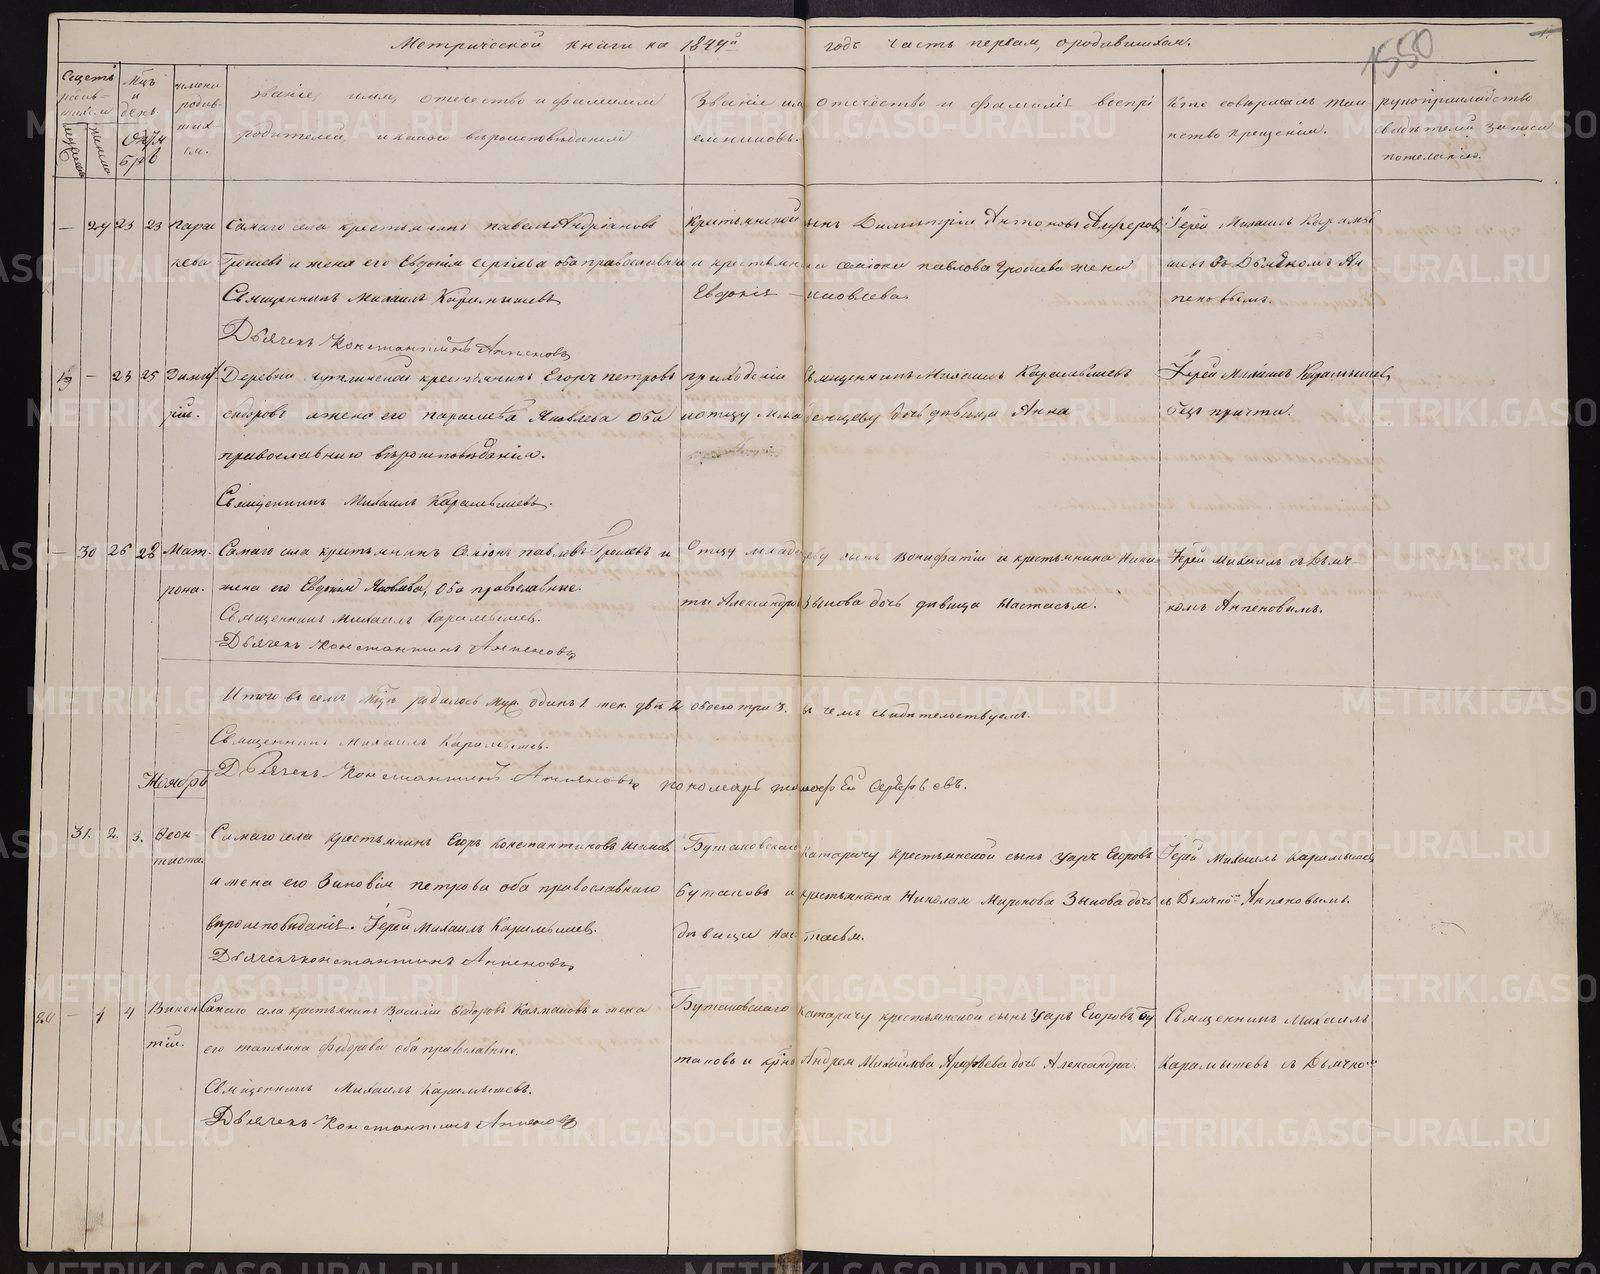 Метрической книги на 1844й годъ часть первая, о родившихся.
1550
Счетъ родившихся
Мцъ и день.
Октябрь
имена родившихся.
Званіе, имя, отечество и фамилія родителей, и какого вероисповѣданія
Званіе имя отечество и фамилія воспріемниковъ.
Кто совершалъ таинство крещенія.
рукоприкладство свидѣтелей записи по желанію.
— 29 23 23 Параскева
Самаго села крестьянинъ Павелъ Андріановъ
Грошевъ и жена его Евдокія Сергіева оба православны
Священникъ Михаилъ Карамышевъ
Дьячекъ Константинъ Аппеновъ
Крестьянской сынъ Димитрій Антоновъ Алферовъ
и крестьянина Семіона Павлова Грошева жена
Евдокія Яковлева.
Іерей Михаилъ Карамышевъ съ Дьячкомъ Аппеновымъ.
19 — 23 25 Димитрій.
Деревни крестьянинъ Егоръ Петровъ
Сидоровъ и жена его Параскева Яковлева оба
православнаго вѣроисповѣданія.
Священникъ Михаилъ Карамышевъ.
приходскій Священникъ Михаилъ Карамышевъ
и отцу младенцеву дочь дѣвица Анна
Іерей Михаилъ Карамышевъ
безъ причта.
— 30 26 28 Матрона.
Самаго села крестьянинъ Семіонъ Павловъ Грошевъ и
жена его Евдокія Яковлева, оба православные.
Священникъ Михаилъ Карамышевъ.
Дьячекъ Константинъ Аппеновъ
Отцу младенцеву сынъ Вонифатій и крестьянина Никиты Александрова Зыкова дочь дѣвица Настасья.
Іерей Михаилъ съ Дьячкомъ Аппеновымъ.
Итого въ семъ мцѣ родилось муж. одинъ 1 жен. двѣ 2 обоего три 3. въ чемъ свидѣтельствуемъ.
Священникъ Михаилъ Карамышевъ.
Дьячекъ Константинъ Аппеновъ пономарь Тимофей Серебровъ.
Ноябрь
31. 2. 3. Феоктиста.
Самаго села крестьянинъ Егоръ Константиновъ
и жена его Зиновія Петрова оба православнаго
вѣроисповѣданія. Іерей Михаилъ Карамышевъ.
Дьячекъ Константинъ Аппеновъ
Бутаковскаго крестьянской сынъ Уаръ Егоровъ
Бутаковъ и крестьянина Николая Миронова Зыкова дочь
дѣвица Настасья.
Іерей Михаилъ Карамышевъ
съ Дьячко Аппеновымъ.
20 — 4 4 Викентій.
Самаго села крестьянинъ Василій Федоровъ Калмаковъ и жена
его Татьяна Федорова оба православные.
Священникъ Михаилъ Карамышевъ.
Дьячекъ Константинъ Аппеновъ
Бутаковскаго крестьянской сынъ Уаръ Егоровъ Бутаковъ и Андрея Михайлова Арефьева дочь Александра.
Священникъ Михаилъ
Карамышевъ съ Дьячко
METRIKI.GASO-URAL.RU